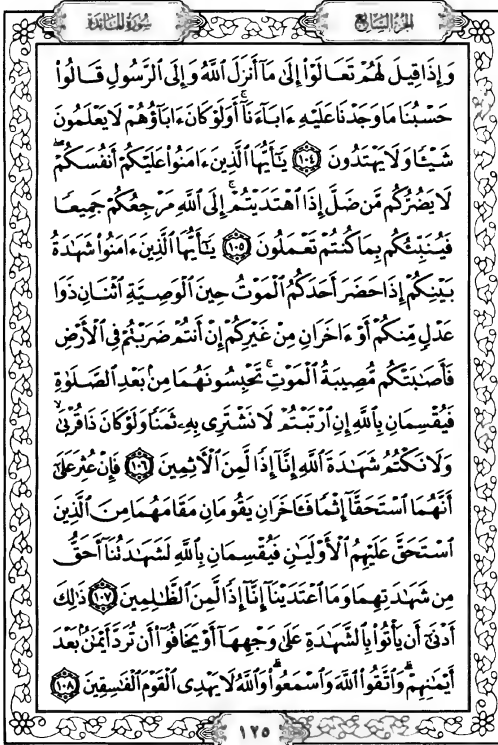 سورة المائدة
الجزء السابع
وَإِذَا قِيلَ لَهُمْ تَعَالَوْا۟ إِلَىٰ مَآ أَنزَلَ ٱللَّهُ وَإِلَى ٱلرَّسُولِ قَالُوا۟
حَسْبُنَا مَا وَجَدْنَا عَلَيْهِ ءَابَآءَنَآ ۚ أَوَلَوْ كَانَ ءَابَآؤُهُمْ لَا يَعْلَمُونَ
شَيْـًٔا وَلَا يَهْتَدُونَ ١٠٤ يَـٰٓأَيُّهَا ٱلَّذِينَ ءَامَنُوا۟ عَلَيْكُمْ أَنفُسَكُمْ ۖ
لَا يَضُرُّكُم مَّن ضَلَّ إِذَا ٱهْتَدَيْتُمْ ۚ إِلَى ٱللَّهِ مَرْجِعُكُمْ جَمِيعًا
فَيُنَبِّئُكُم بِمَا كُنتُمْ تَعْمَلُونَ ١٠٥ يَـٰٓأَيُّهَا ٱلَّذِينَ ءَامَنُوا۟ شَهَـٰدَةُ
بَيْنِكُمْ إِذَا حَضَرَ أَحَدَكُمُ ٱلْمَوْتُ حِينَ ٱلْوَصِيَّةِ ٱثْنَانِ ذَوَا
عَدْلٍ مِّنكُمْ أَوْ ءَاخَرَانِ مِنْ غَيْرِكُمْ إِنْ أَنتُمْ ضَرَبْتُمْ فِى ٱلْأَرْضِ
فَأَصَـٰبَتْكُم مُّصِيبَةُ ٱلْمَوْتِ ۚ تَحْبِسُونَهُمَا مِنۢ بَعْدِ ٱلصَّلَوٰةِ
فَيُقْسِمَانِ بِٱللَّهِ إِنِ ٱرْتَبْتُمْ لَا نَشْتَرِى بِهِۦ ثَمَنًا وَلَوْ كَانَ ذَا قُرْبَىٰ ۙ
وَلَا نَكْتُمُ شَهَـٰدَةَ ٱللَّهِ إِنَّآ إِذًا لَّمِنَ ٱلْـَٔاثِمِينَ ١٠٦ فَإِنْ عُثِرَ عَلَىٰٓ
أَنَّهُمَا ٱسْتَحَقَّآ إِثْمًا فَـَٔاخَرَانِ يَقُومَانِ مَقَامَهُمَا مِنَ ٱلَّذِينَ
ٱسْتَحَقَّ عَلَيْهِمُ ٱلْأَوْلَيَـٰنِ فَيُقْسِمَانِ بِٱللَّهِ لَشَهَـٰدَتُنَآ أَحَقُّ
مِن شَهَـٰدَتِهِمَا وَمَا ٱعْتَدَيْنَآ إِنَّآ إِذًا لَّمِنَ ٱلظَّـٰلِمِينَ ١٠٧ ذَٰلِكَ
أَدْنَىٰٓ أَن يَأْتُوا۟ بِٱلشَّهَـٰدَةِ عَلَىٰ وَجْهِهَآ أَوْ يَخَافُوٓا۟ أَن تُرَدَّ أَيْمَـٰنٌۢ بَعْدَ
أَيْمَـٰنِهِمْ ۗ وَٱتَّقُوا۟ ٱللَّهَ وَٱسْمَعُوا۟ ۗ وَٱللَّهُ لَا يَهْدِى ٱلْقَوْمَ ٱلْفَـٰسِقِينَ ١٠٨
١٢٥